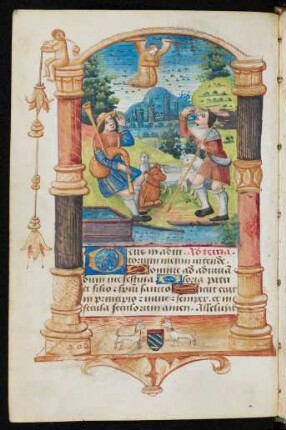 Deus in adiu. Ad tercia.
torium meum intende
Domine ad adiuua
dum me festina Gloria patri
et filio: spiritui sancto Sicut erat
in principio: et nunc: et semper. et in
secula seculorum amen. Alleluia